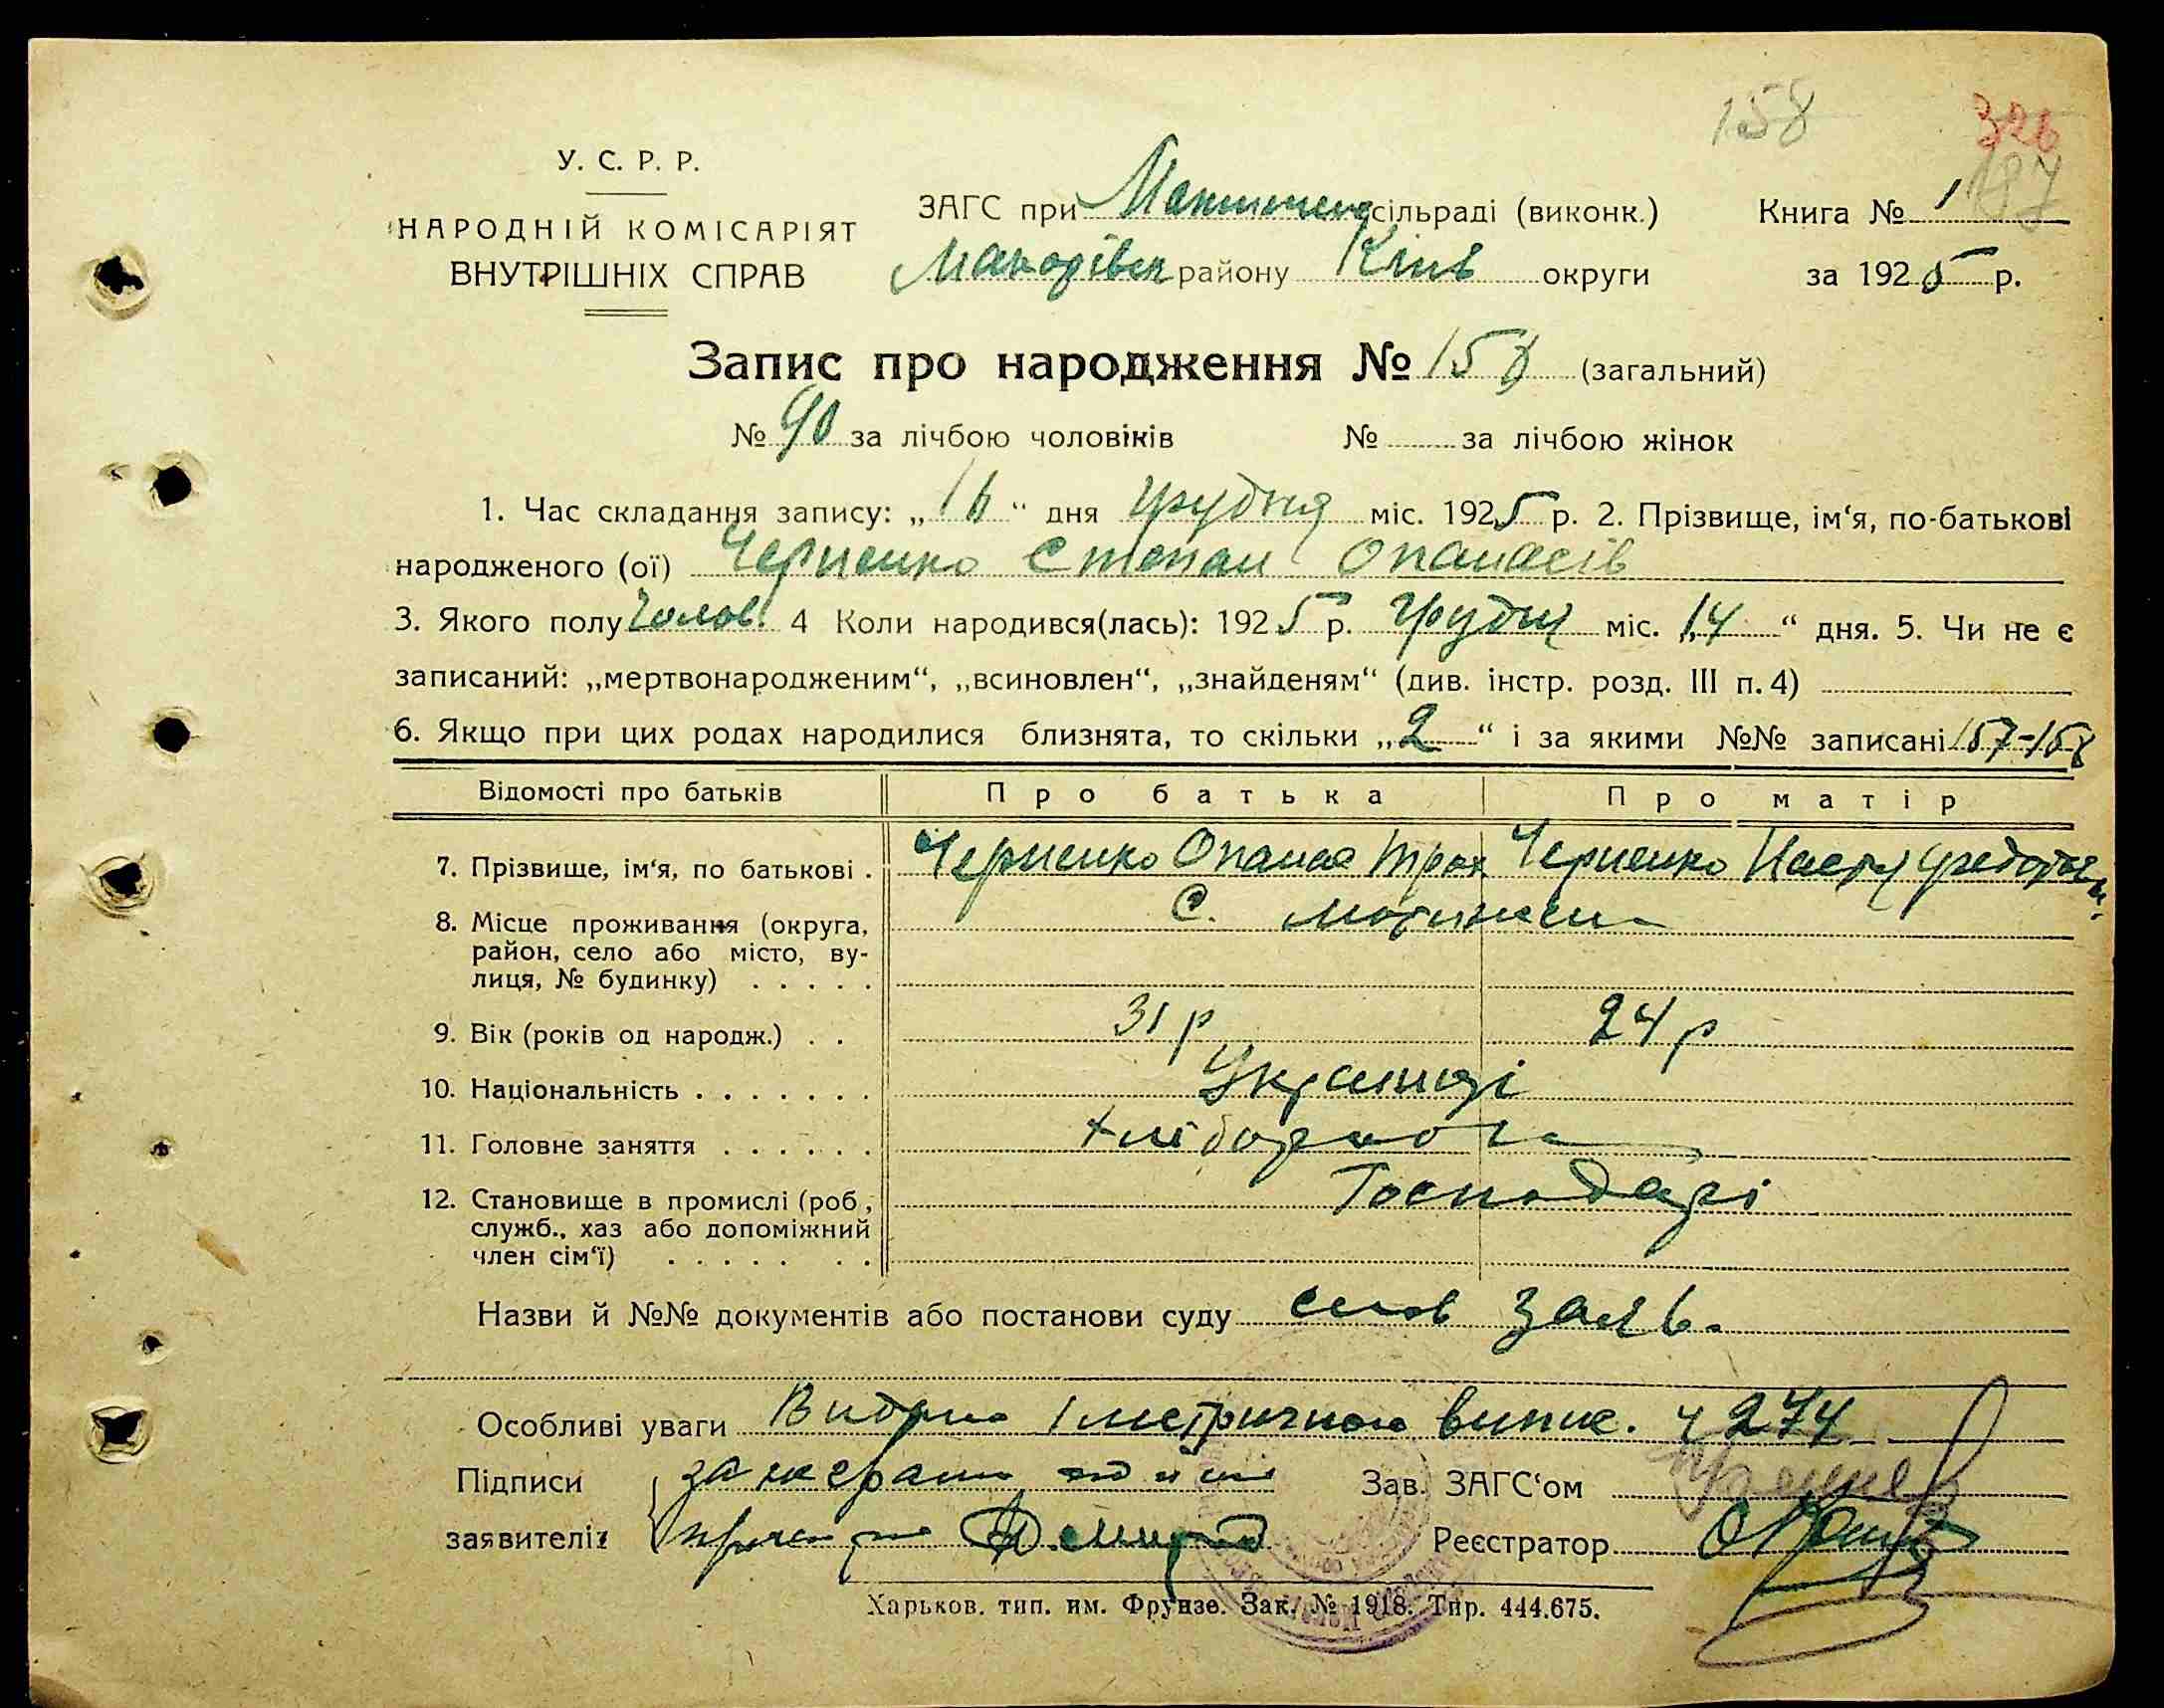 158
326
187
У. С. Р. Р.
НАРОДНІЙ КОМІСАРІЯТ
ВНУТРІШНІХ СПРАВ
ЗАГС при сільраді (виконк.)
Макарівськ району Київ округи
Книга № 1
за 1925 р.
Запис про народження № 158 (загальний)
№ 90 за лічбою чоловіків № за лічбою жінок
1. Час складання запису: „16“ дня грудня міс. 1925 р. 2. Прізвище, ім‘я, по-батькові
народженого (ої) Черненко Степан Опанасів
3. Якого полу Чолов. 4 Коли народився(лась): 1925 р. Грудня міс. „14“ дня. 5. Чи не є
записаний: „мертвонародженим“, „всиновлен“, „знайденям“ (див. інстр. розд. III п. 4)
6. Якщо при цих родах народилися близнята, то скільки „2“ і за якими №№ записані 157-158
Відомості про батьків Про батька Про матір
7. Прізвище, ім‘я, по батькові . Черненко Опанас Трох Черненко Настя
8. Місце проживання (округа, С. Мотижин
район, село або місто, ву-
лиця, № будинку) . . . . .
9. Вік (років од народж.) . . 31 р 24 р
10. Національність . . . . . . . Українці
11. Головне заняття . . . . . . Хліборобство
12. Становище в промислі (роб., Господарі
служб., хаз або допоміжний
член сім‘ї) . . . . . . .
Назви й №№ документів або постанови суду слов заяв.
Особливі уваги Видано 1 метричного випис. ч 274
Підписи за неграмотного Зав. ЗАГС‘ом
заявителів Реєстратор
Харьков. тип. им. Фрунзе. Зак. № 1918. Тир. 444.675.